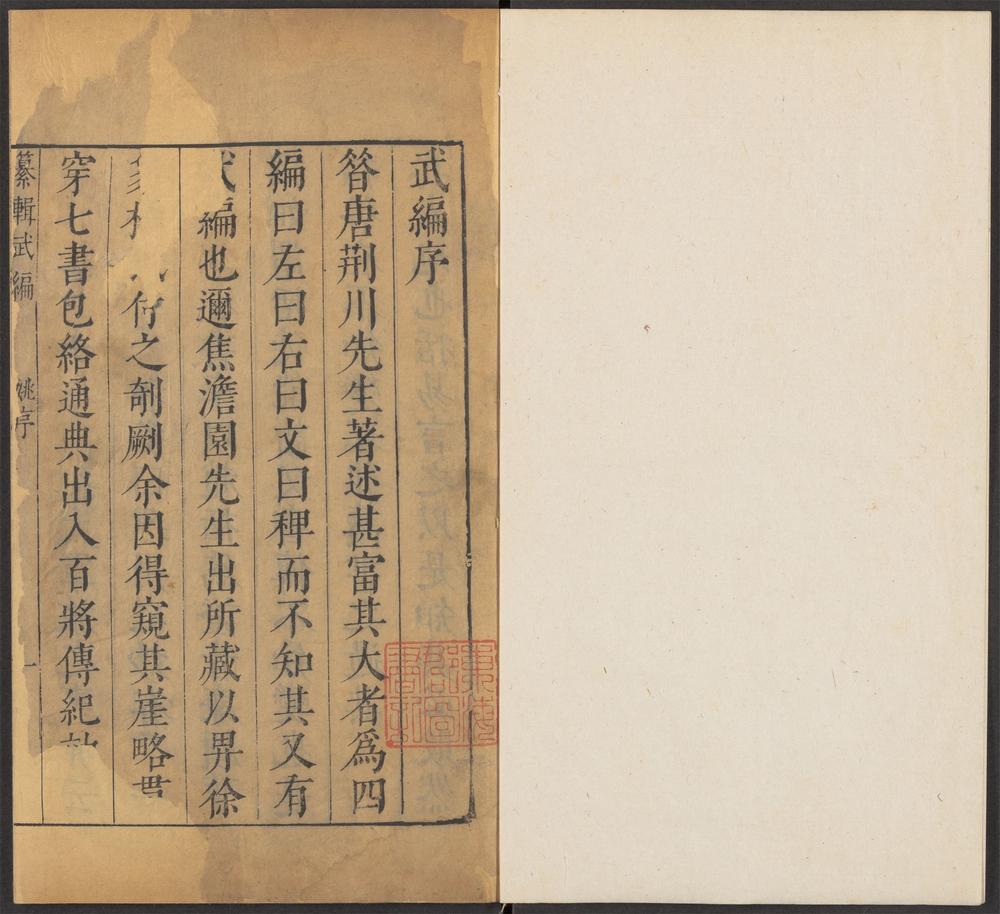 武編序
昝唐荆川先生著述甚富其大者爲四
編曰左曰右曰文曰稗而不知其又有
武編也邇焦澹園先生出所藏以畀徐
付之剞劂余因得窺其崖略貫
穿七書包絡通典出入百將傳紀
纂輯武編 姚序 一